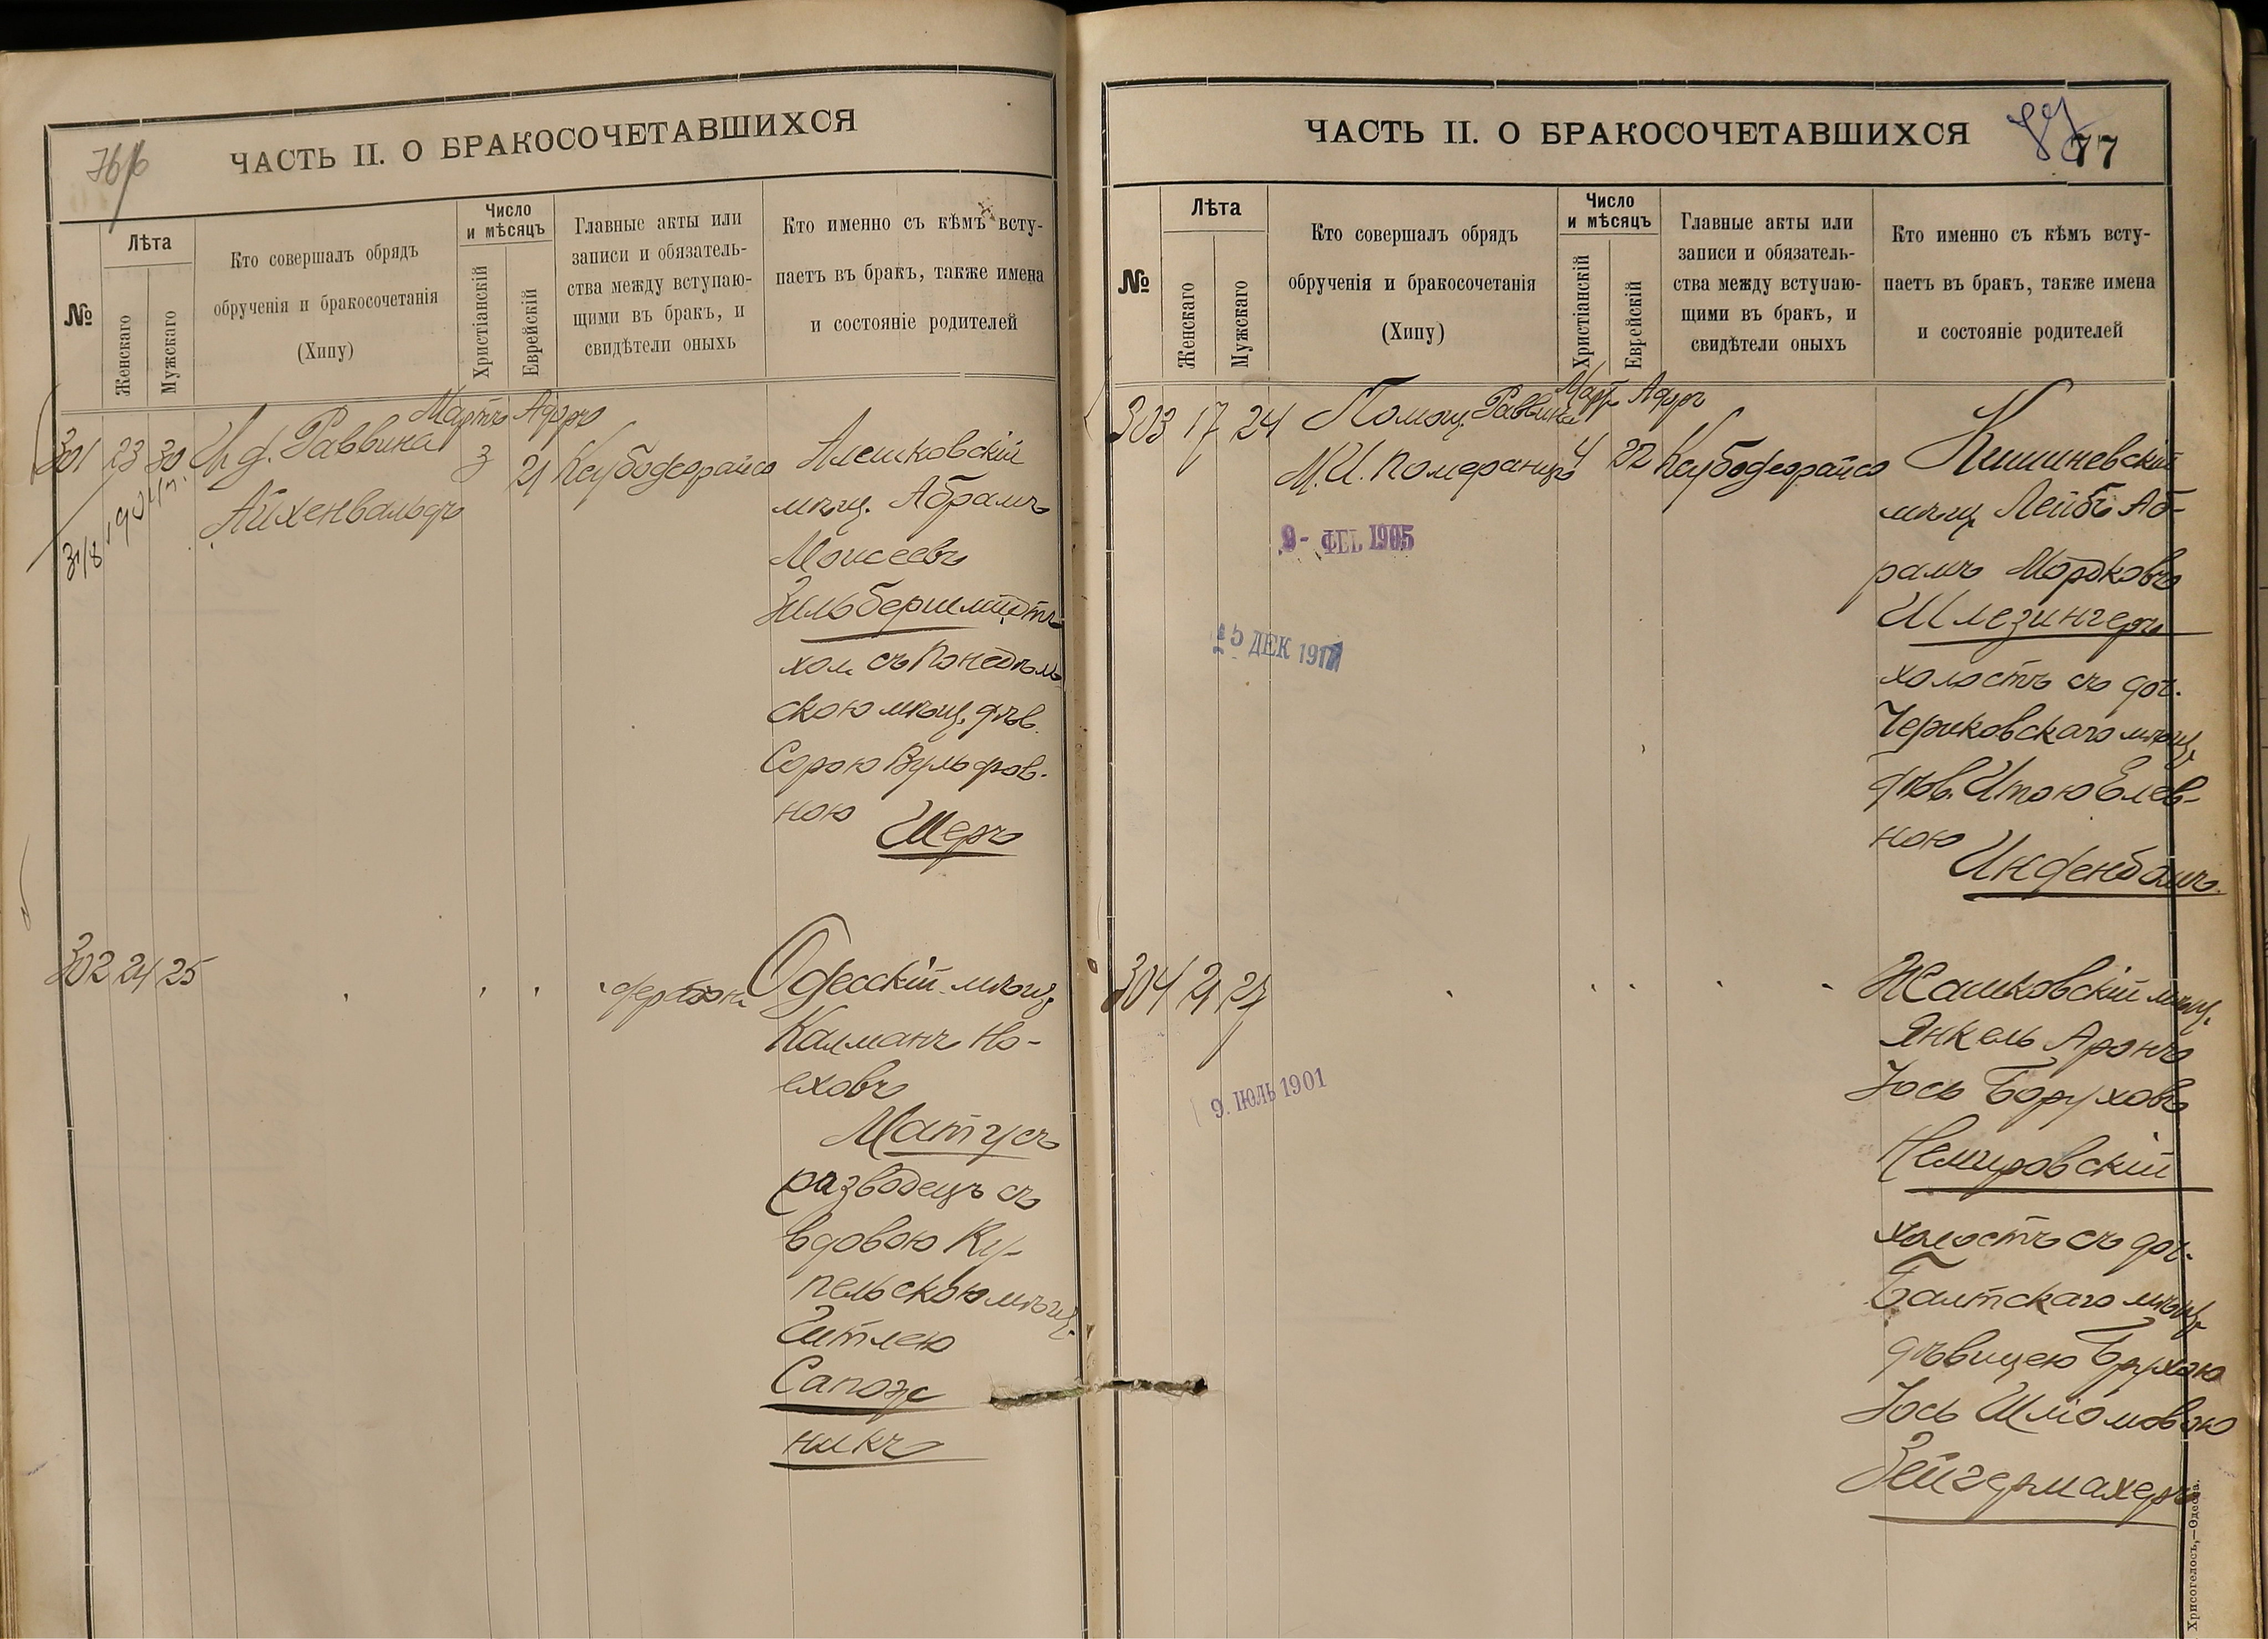 ЧАСТЬ II. О БРАКОСОЧЕТАВШИХСЯ
№
Лѣта
Женскаго
Мужскаго
Кто совершалъ обрядъ
обрученія и бракосочетанія
(Хипу)
Число
и мѣсяцъ
Христіанскій
Еврейскій
Главные акты или
записи и обязатель-
ства между вступаю-
щими въ бракъ, и
свидѣтели оныхъ
Кто именно съ кѣмъ всту-
паетъ въ бракъ, также имена
и состояніе родителей
301 23 30
И. д. Раввина
Айхенвальдъ
Мартъ
3
Адаръ
21
31/8 1904 г.
Алешковскій
мѣщ. Абрамъ
Моисеевъ
Зильбершмидтъ
хол. съ
скою мѣщ. дѣв.
Сорою Вульфов-
ною
Шеръ
302 24 25
Одесскій мѣщ.
Калманъ Но-
еховъ
Матусъ
разводецъ съ
вдовою Ку-
пельскою мѣщ.
Гитлею
Сапож
никъ
ЧАСТЬ II. О БРАКОСОЧЕТАВШИХСЯ
77
№
Лѣта
Женскаго
Мужскаго
Кто совершалъ обрядъ
обрученія и бракосочетанія
(Хипу)
Число
и мѣсяцъ
Христіанскій
Еврейскій
Главные акты или
записи и обязатель-
ства между вступаю-
щими въ бракъ, и
свидѣтели оныхъ
Кто именно съ кѣмъ всту-
паетъ въ бракъ, также имена
и состояніе родителей
303 17 24
Помощ. Раввина
М. И. Померанцъ
Март
4
Адаръ
22
9- ФЕВ 1905
ДЕК 1917
Кишиневскій
мѣщ. Лейбъ Аб-
рамъ Мордковъ
Шлезингеръ
холостъ съ доч.
Чериковскаго мѣщ.
дѣв. Итою Елев-
ною
Инденбамъ
304 21 27
9. ІЮЛЬ 1901
Жашковскій мѣщ.
Янкель Аронъ
Юсь Боруховъ
Немировскій
холостъ съ доч.
Балтскаго мѣщ.
дѣвицею Брухою
Юсь Шліомовою
Зейгермахеръ
Хрисогелосъ,—Одесса.